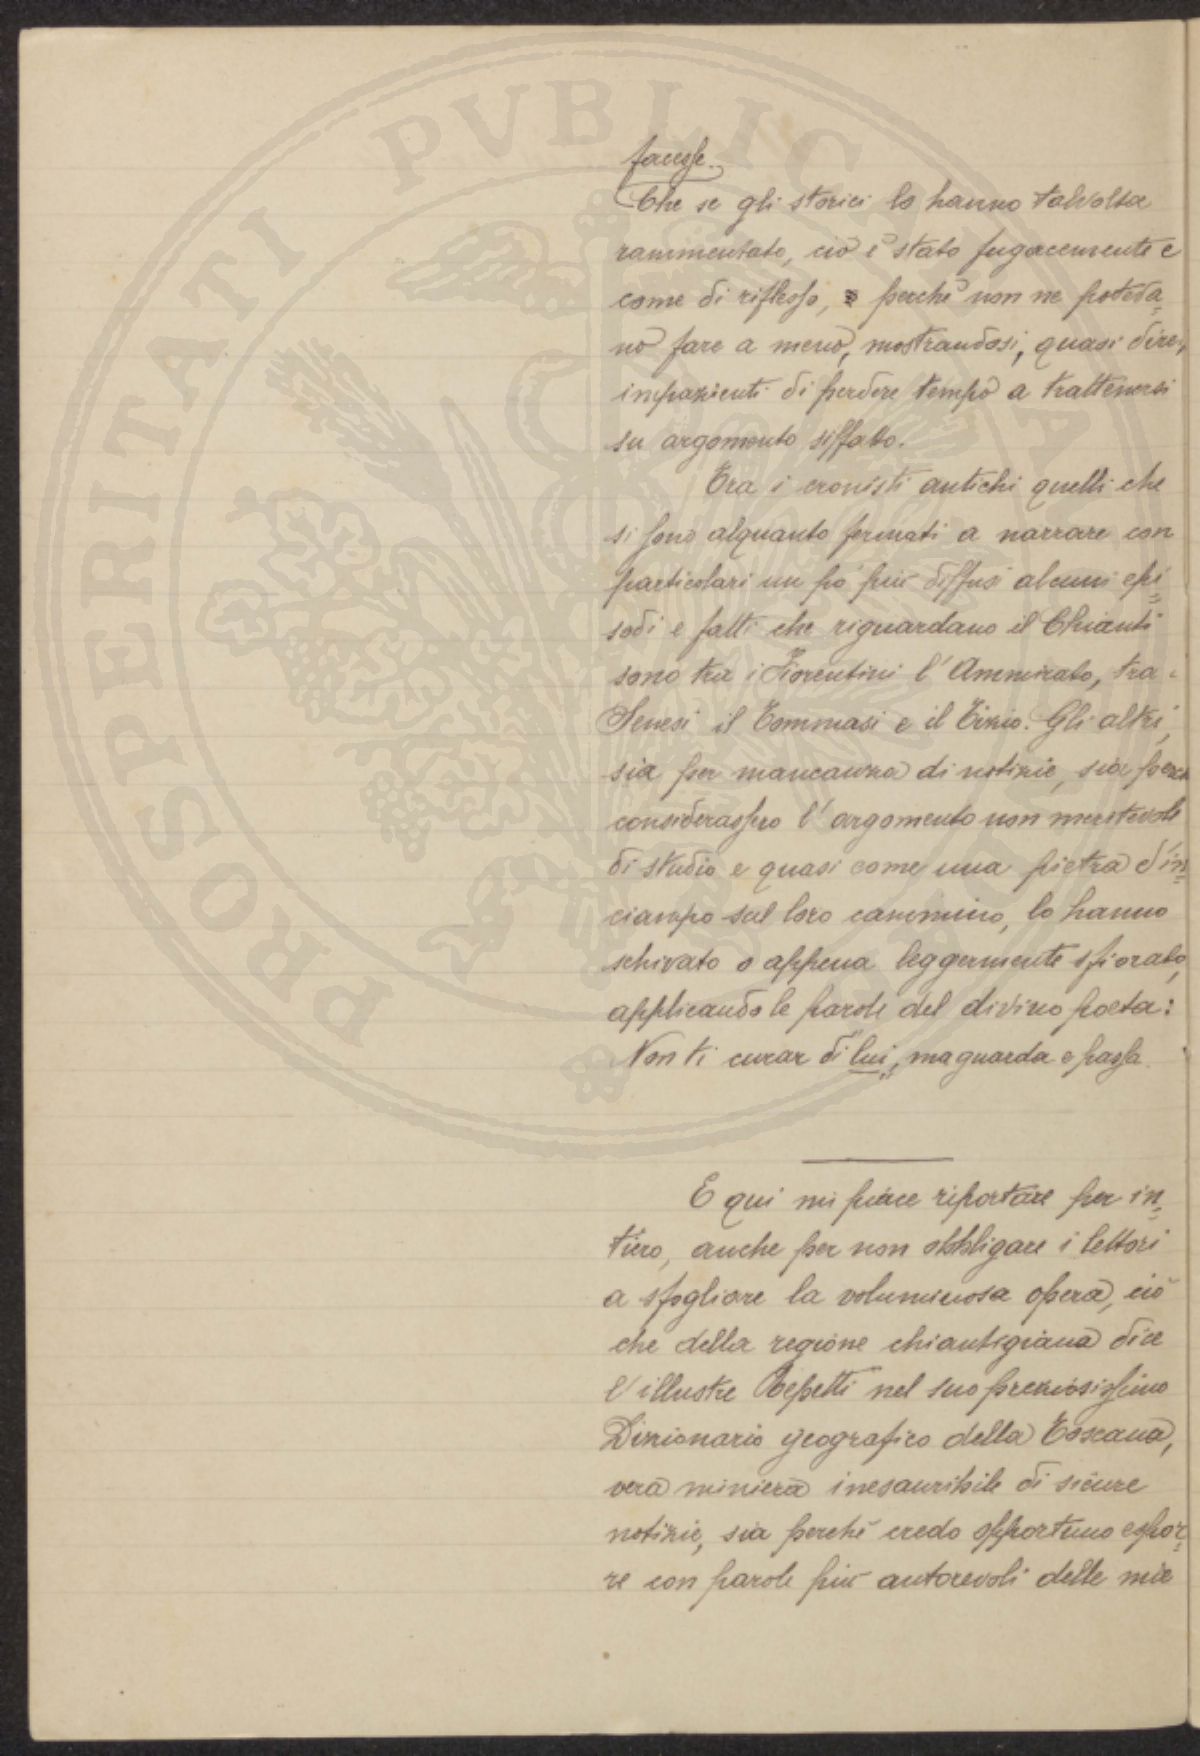 facesse.
Che se gli storici lo hanno talvolta
rammentato, ciò è stato fugacemente e
come di riflesso, perchè non ne poteva-
no fare a meno, mostrandosi, quasi direi,
impazienti di perdere tempo a trattenersi
su argomento siffatto.
Tra i cronisti antichi quelli che
si sono alquanto fermati a narrare con
particolari un po' più diffusi alcuni epi=
sodi e fatti che riguardano il Chianti
sono tra i Fiorentini l'Ammirato, tra i
Senesi il Tommasi e il Tizio. Gli altri,
sia per mancanza di notizie, sia perchè
considerassero l'argomento non meritevole
di studio e quasi come una pietra d'in=
ciampo sul loro cammino, lo hanno
schivato o appena leggermente sfiorato,
applicando le parole del divino poeta:
Non ti curar di lui, ma guarda e passa.
E qui mi piace riportare per in=
tiero, anche per non obbligare i lettori
a sfogliare la voluminosa opera, ciò
che della regione chiantigiana dice
l'illustre Repetti nel suo preziosissimo
Dizionario geografico della Toscana,
vera miniera inesauribile di sicure
notizie, sia perchè credo opportuno espor=
re con parole più autorevoli delle mie
PROSPERITATI PVBLICAE